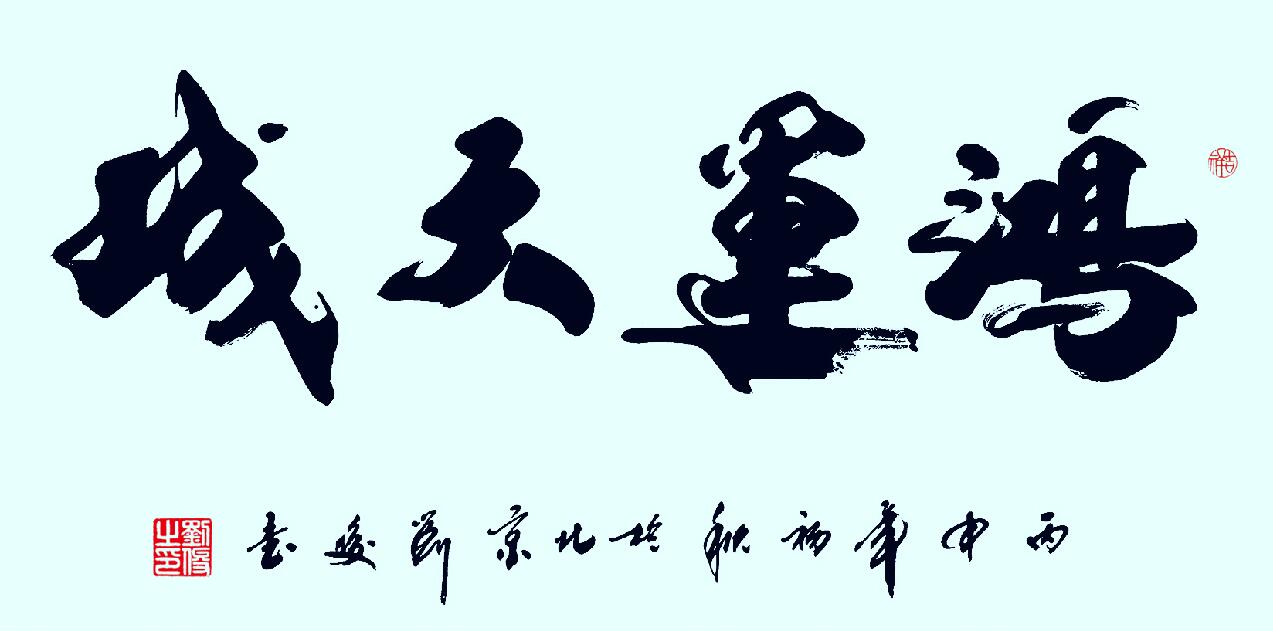 鴻運天成
丙申年初秋於北京劉俊書
劉俊之印